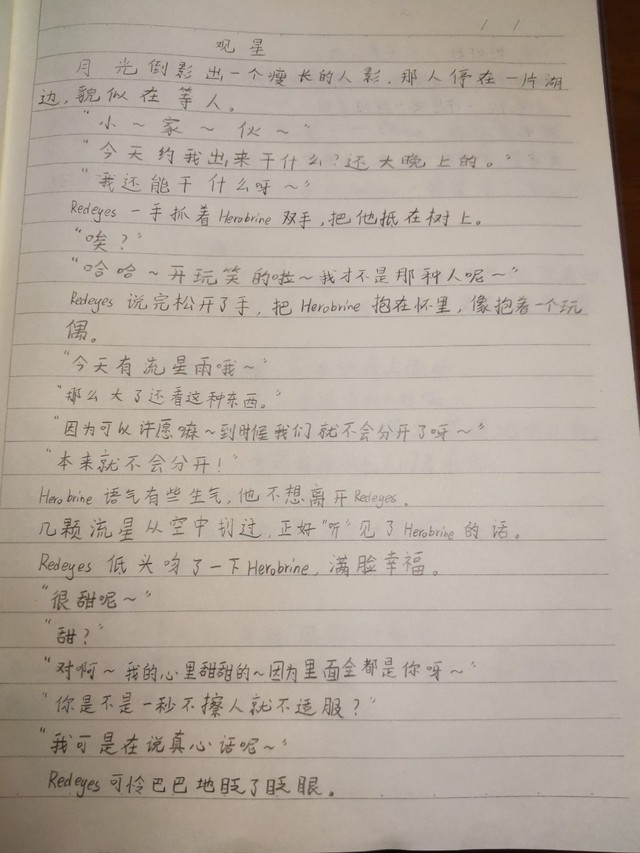 观星
月光倒影出一个瘦长的人影,那人停在一片湖
边,貌似在等人。
"小~家~伙~"
"今天约我出来干什么?还大晚上的。"
"我还能干什么呀~"
Redeyes 一手抓着Herobrine 双手,把他抵在树上。
"唉?"
"哈哈~开玩笑的啦~我才不是那种人呢~"
Redeyes 说完松开了手,把 Herobrine 抱在怀里,像抱着一个玩
偶。
"今天有流星雨哦~"
"那么大了还看这种东西。"
"因为可以许愿嘛~到时候我们就不会分开了呀~"
"本来就不会分开!"
Herobrine 语气有些生气,他不想离开Redeyes。
几颗流星从空中划过,正好"听"见了Herobrine的话。
Redeyes 低头吻了一下Herobrine,满脸幸福。
"很甜呢~"
"甜?"
"对啊~我的心里甜甜的~因为里面全都是你呀~"
"你是不是一秒不撩人就不适服?"
"我可是在说真心话呢~"
Redeyes可怜巴巴地眨了眨眼。